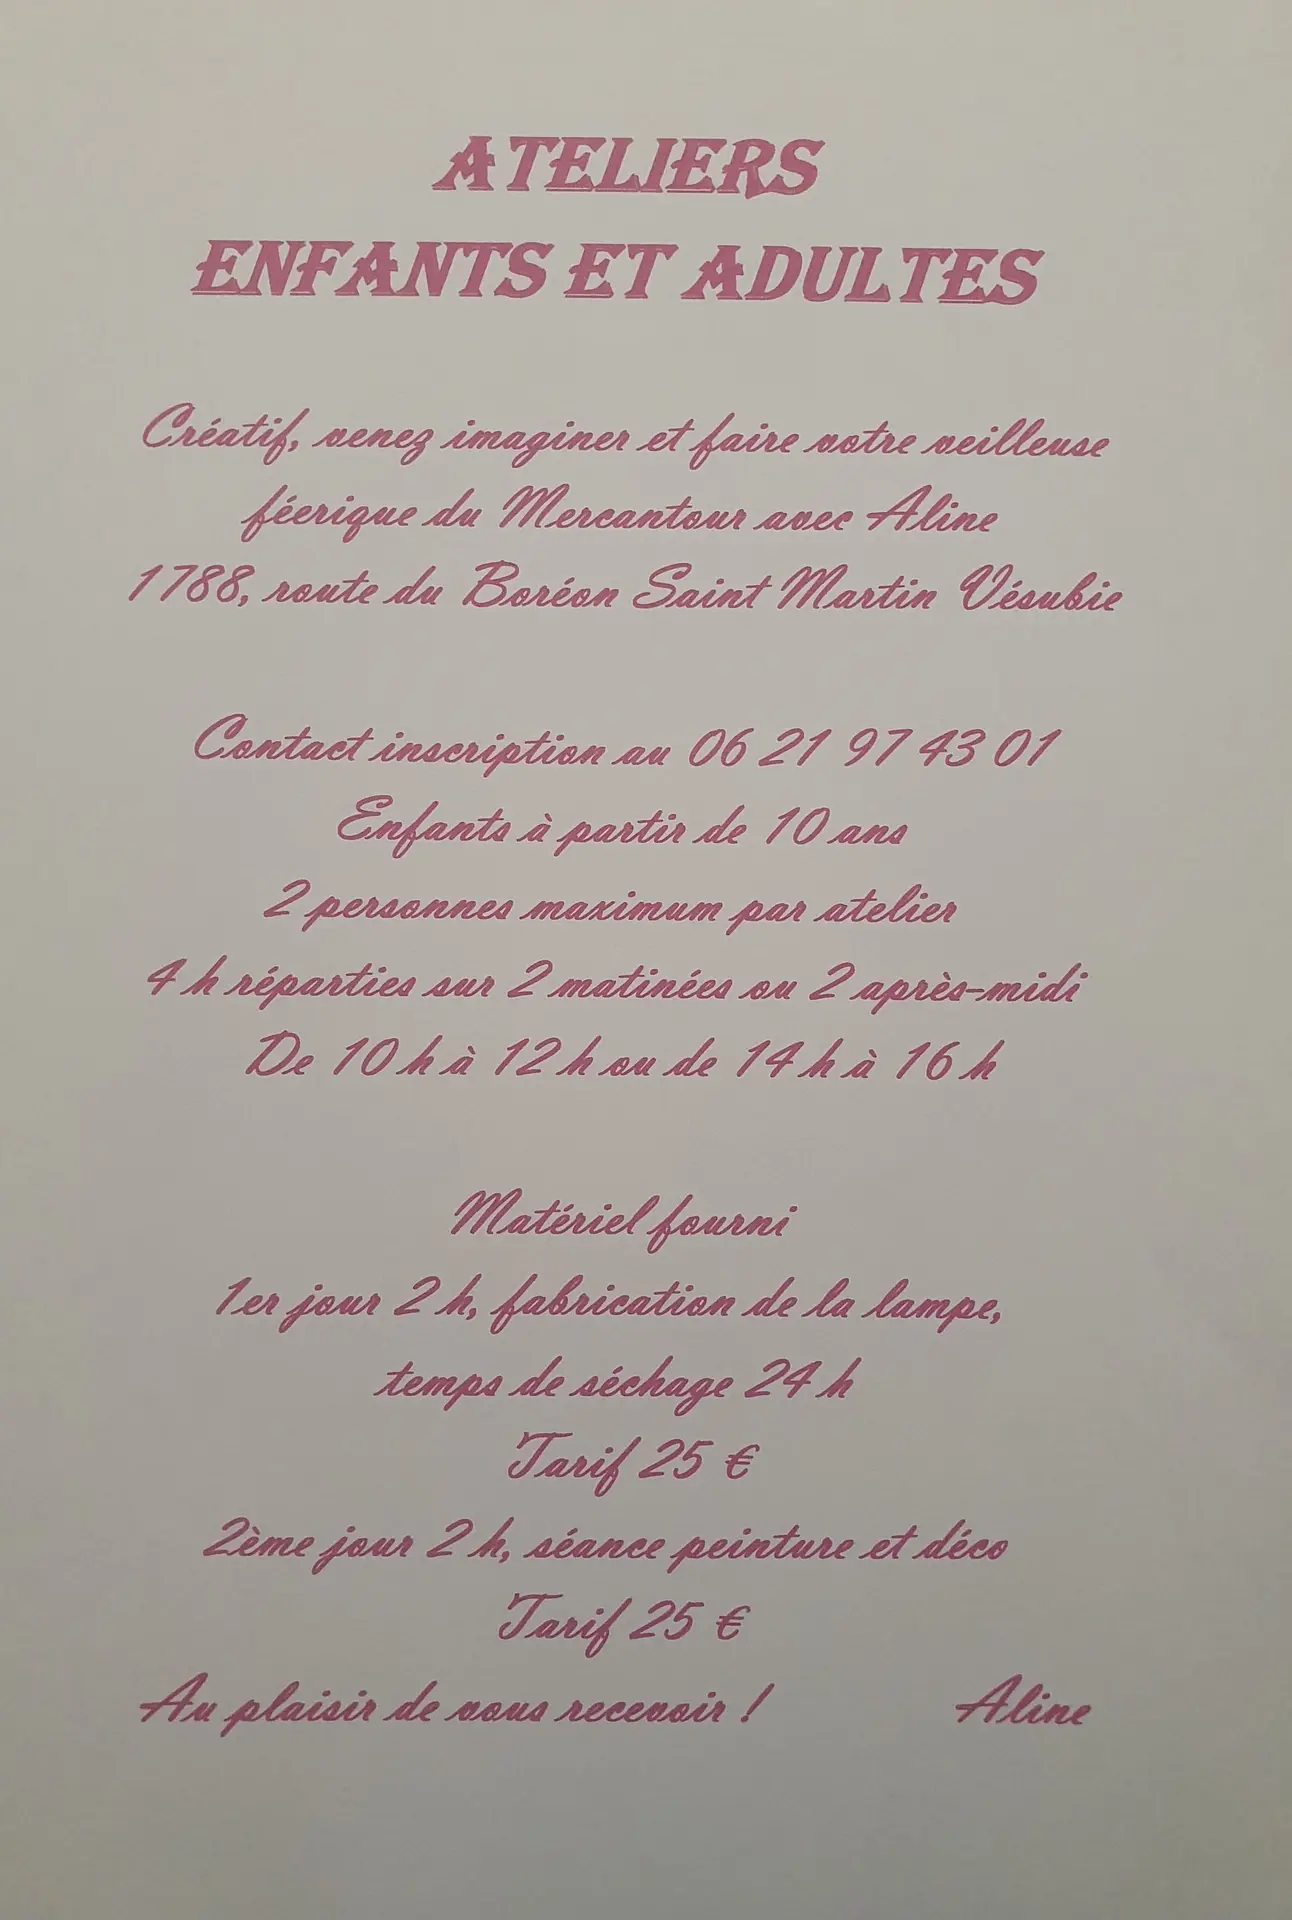 ATELIERS
ENFANTS ET ADULTES
Créatif, venez imaginer et faire votre veilleuse
féerique du Mercantour avec Aline
1788, route du Boréon Saint Martin Vésubie
Contact inscription au 06 21 97 43 01
Enfants à partir de 10 ans
2 personnes maximum par atelier
4 h réparties sur 2 matinées ou 2 après-midi
De 10 h à 12 h ou de 14 h à 16 h
Matériel fourni
1er jour 2 h, fabrication de la lampe,
temps de séchage 24 h
Tarif 25 €
2ème jour 2 h, séance peinture et déco
Tarif 25 €
Au plaisir de vous recevoir ! Aline